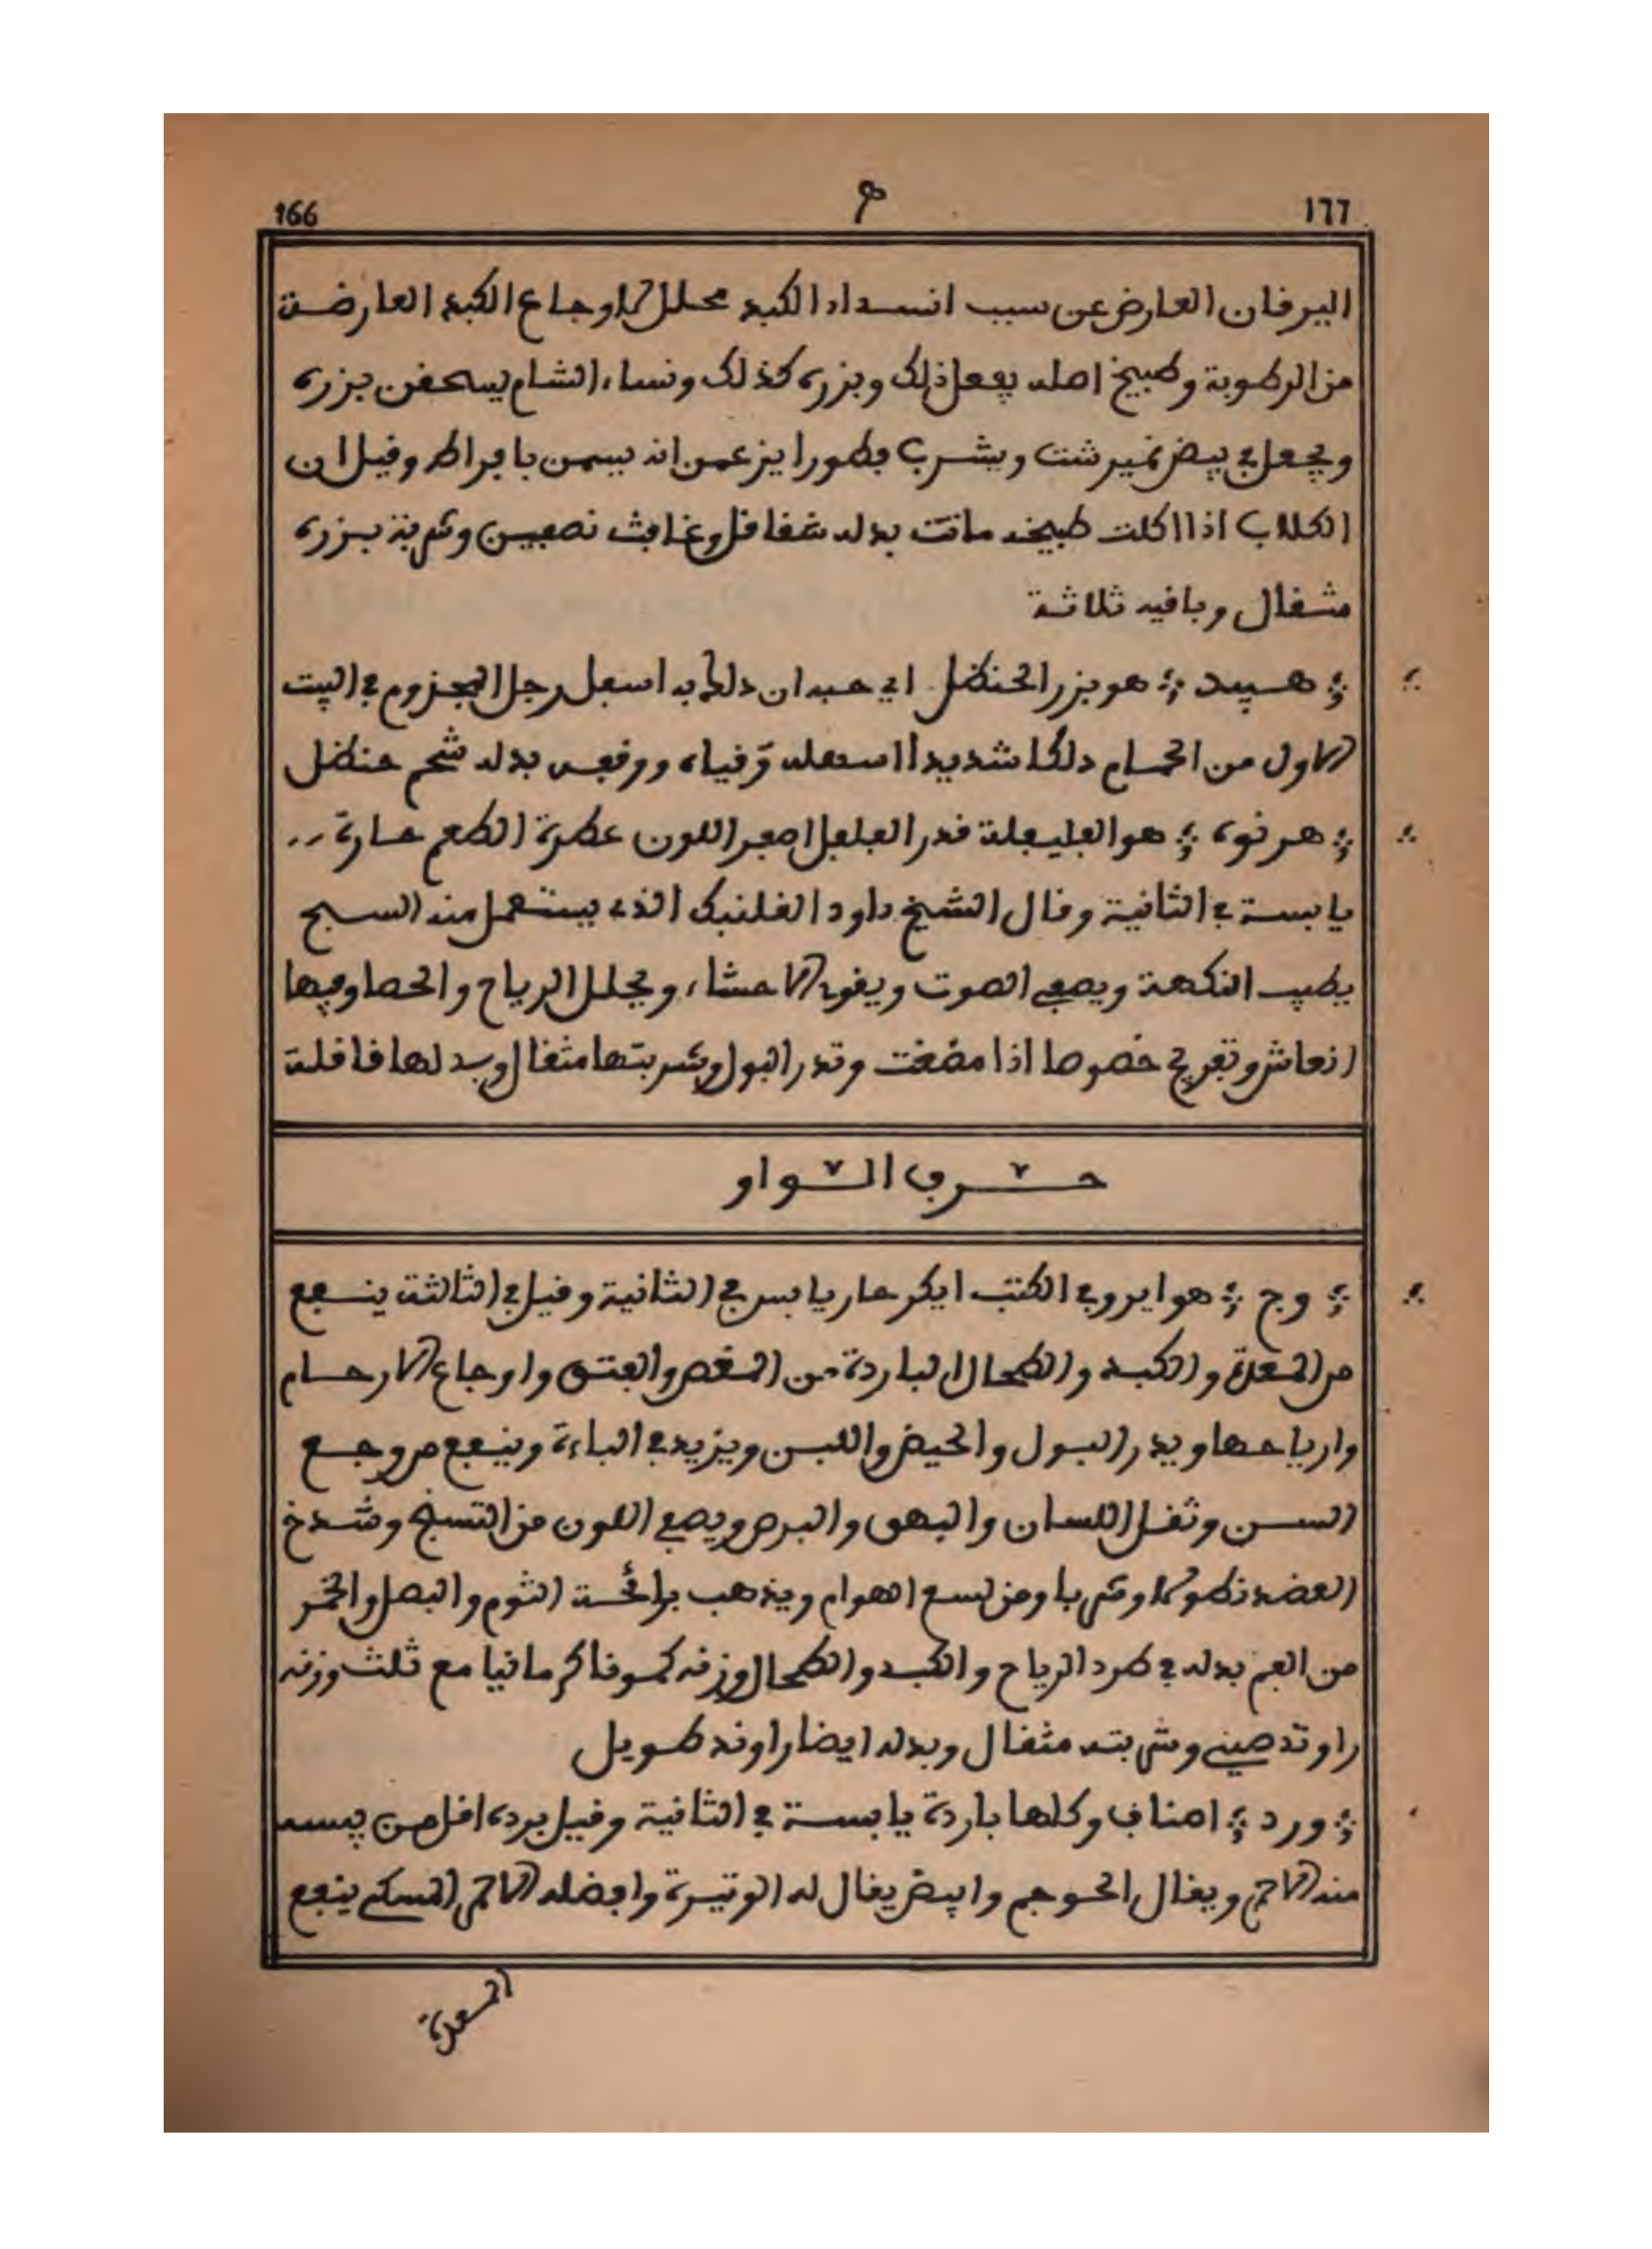 166 ١٦٦
اليرقان العارض عن سبب انسداد الكبد محلل لاوجاع الكبد العارضة
من الرطوبة وطبيخ اصله يفعل ذلك وبزره كذلك ونساء الشام يسحقن بزره
ويجعل في بيض نميرشت ويشرب فطورا يزعمن انه يسمن بافراط وقيل ان
الكلاب اذا اكلت طبيخه ماتت بدله شقاقل وغافث نصفين وشربة بزره
مثقال وباقيه ثلاثة
هبيد هو بزر الحنظل اي حبه ان دلك به اسفل رجل المجزوم في البيت
الاول من الحمام دلكا شديدا اسهله وقياه ووقعه بدله شحم حنظل
هرنوه هو الفليفلة قدر الفلفل اصفر اللون عطرة الطعم حارة
يابسة في الثانية وقال الشيخ داود القلنبك الذي يستعمل منه السبح
يطيب النكهة ويصفي الصوت ويقوي الاحشاء ويحلل الرياح والحصا وفيها
انعاش وتفريح خصوصا اذا مضغت وتدر البول وشربتها مثقال وبدلها قاقلة
حرف الواو
وج هو ايرو في الكتب ايكر حار يابس في الثانية وقيل في الثالثة ينفع
من المعدة والكبد والطحال الباردة من المغص والفتق واوجاع الارحام
وارياحها ويدر البول والحيض واللبن ويزيد في الباءة وينفع من وجع
السن وثقل اللسان والبهق والبرص ويصفي اللون من التسنج وشدخ
العضد نطولا وشربا ومن لسع الهوام ويذهب برائحة الثوم والبصل والخمر
من الفم بدله في طرد الرياح والكبد والطحال وزنه كمونا كرمانيا مع ثلث وزنه
راوند صيني وشربته مثقال وبدله ايضا راوند طويل
ورد اصناف وكلها باردة يابسة في الثانية وقيل برده اقل من يبسه
منه الاحمر ويقال الحوجم وابيض يقال له الوتيرة وافضله الاحمر المسكي ينفع
المعدة